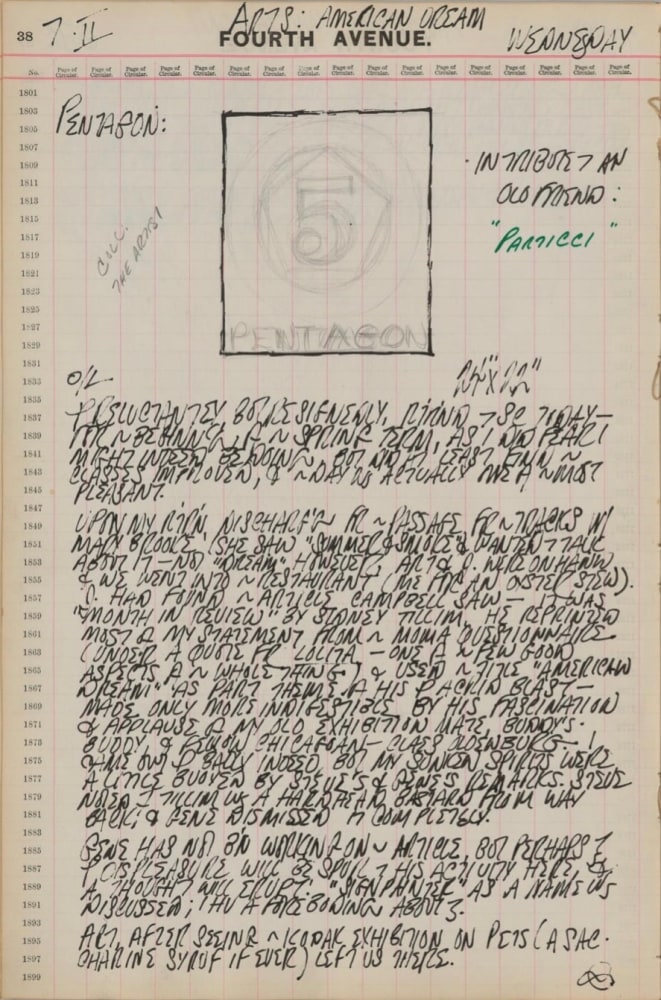 38 7·II ARTS: AMERICAN DREAM
FOURTH AVENUE. WEDNESDAY
No. Page of Circular. Page of Circular. Page of Circular. Page of Circular. Page of Circular. Page of Circular. Page of Circular. Page of Circular. Page of Circular. Page of Circular. Page of Circular. Page of Circular. Page of Circular. Page of Circular. Page of Circular. Page of Circular. Page of Circular.
1801
1803
1805 PENTAGON:
1807
1809 · IN TRIBUTE 7 AN
1811
1813 5 OLD FRIEND:
1815 COLL.
1817 THE ARTIST "PARTICCI"
1819
1821
1823
1825
1827 PENTAGON
1829
1831
1833 O/L 24"X22"
1835
1837 RELUCTANTLY, BUT RESIGNEDLY, 7 SC. 7DAY—
1839 FOR ~ BEGINNING ~ SPRING TERM, AS I DID FEAR I
1841 MIGHT DOING ~, BUT DID AT LEAST FIND ~
1843 CLASSES IMPROVED, & ~ DAY WS ACTUALLY ~ MOST
1845 PLEASANT.
1847
1849 UPON MY DISCHARG'G FR ~ PASSAGE FR ~ TRACKS W/
1851 MARY BROOKE (SHE SAW "SUMMER & SMOKE" & WANTED 7 TALK
1853 ABOUT IT—NOT "DREAM" HOWEVER, ART & WERE ON HAND
1855 & WE WENT INTO ~ RESTAURANT (ME FOR AN OYSTER STEW).
1857 HAD FOUND ~ ARTICLE CAMPBELL SAW— IT WAS
1859 "MONTH IN REVIEW" BY SIDNEY TILLIM. HE REPRINTED
1861 MOST OF MY STATEMENT FROM ~ MOMA QUESTIONNAIRE
1863 (UNDER A QUOTE FR LOLITA — ONE OF ~ FEW GOOD
1865 ASPECTS OF ~ WHOLE THING) & USED ~ TITLE "AMERICAN
1867 DREAM" AS PART THEME OF HIS BLAST—
1869 MADE ONLY MORE INDIGESTIBLE BY HIS FASCINATION
1871 & APPLAUSE OF MY OLD EXHIBITION MATE, BUDDY'S.
1873 BUDDY, & FELLOW CHICAGOAN— CLAES OLDENBURG— I
1875 CAME OUT BADLY INDEED, BUT MY SUNKEN SPIRITS WERE
1877 A LITTLE BUOYED BY STEVE'S & GENE'S REMARKS. STEVE
1879 NOTED TILLIM WS A HARDHEAD BASTARD FROM WAY
1881 BACK; & GENE DISMISSED IT COMPLETELY.
1883
1885 GENE HAS NOT BN WORKING ON ~ ARTICLE, BUT PERHAPS
1887 DISPLEASURE WILL BE SPUR 7 HIS ACTIVITY HERE, &
1889 A THOUGHT WILL ERUPT. "SIGN PAINTER" AS A NAME WS
1891 DISCUSSED; I HV A FOREBODING ABOUT
1893
1895 ART, AFTER SEEING ~ KODAK EXHIBITION ON PETS (A SAC-
1897 CHARINE SYRUP IF EVER) LEFT US THERE.
1899